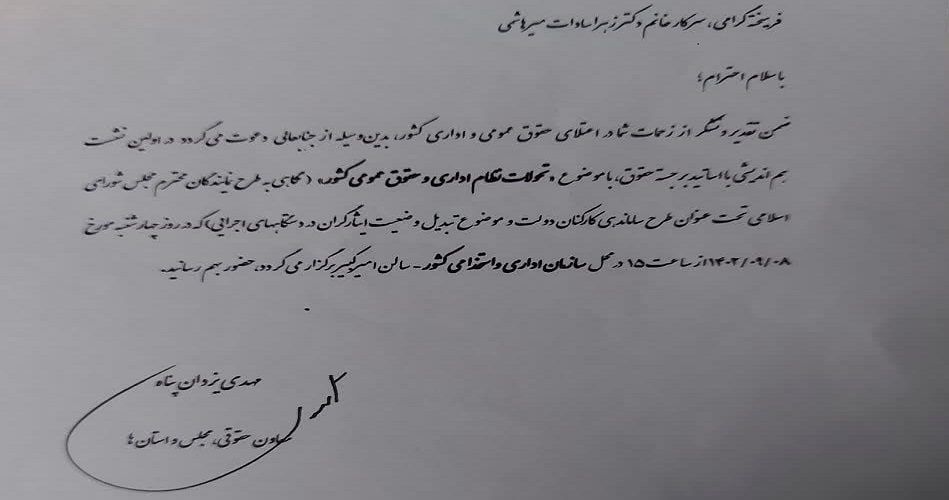 فرهیخته گرامی، سرکار خانم دکتر زهرا سادات میرهاشمی
با سلام احترام؛
ضمن تقدیر و تشکر از زحمات شما در اعتلای حقوق عمومی و اداری کشور، بدین وسیله از جنابعالی دعوت می گردد در اولین نشست
هم اندیشی با اساتید برجسته حقوق، با موضوع «تحولات نظام اداری و حقوق عمومی کشور» (نگاهی به طرح نمایندگان محترم مجلس شورای
اسلامی تحت عنوان طرح ساماندهی کارکنان دولت و موضوع تبدیل وضعیت ایثارگران در دستگاههای اجرایی) که در روز چهارشنبه مورخ
۱۴۰۲/۰۹/۰۸ از ساعت ۱۵ در محل سازمان اداری و استخدامی کشور - سالن امیرکبیر برگزار می گردد، حضور بهم رسانید.
مهدی یزدان پناه
معاون حقوقی، مجلس و استان ها